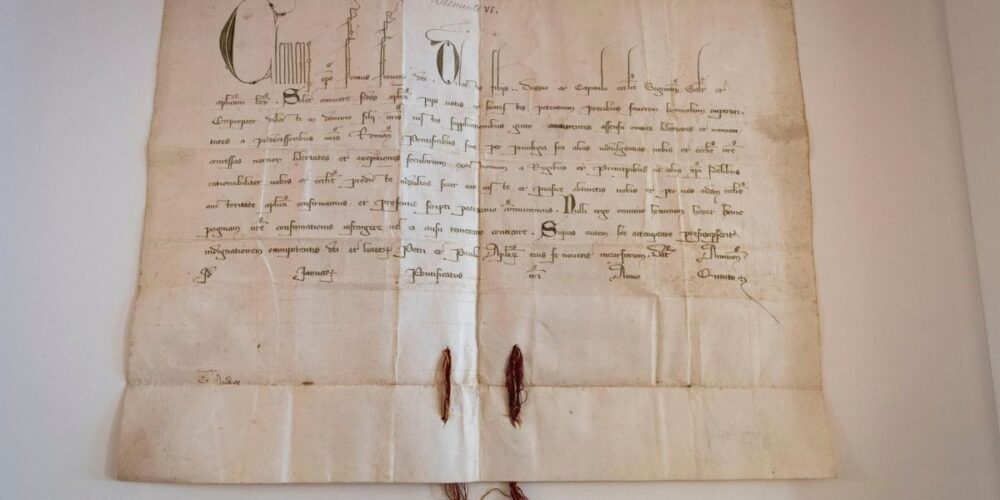 Clementi VI.
Clemens ep̅s servus servorum dei. Dilectis filiis .. Decano et Capitulo eccl̅ie
Solet annuere sedes aplica piis votis et honestis petentium precibus favorem benivolum impertiri.
Eapropter dilecti in domino filii vr̅is iustis supplicationibus grato concurrentes assensu omnes libertates et immuni
tates a predecessoribus nr̅is Romanis Pontificibus sive per privilegia seu alias indulgentias vobis et eccl̅ie vr̅e
concessas necnon libertates et exemptiones secularium exactionum a Regibus et Principibus ac aliis xp̅i fidelibus
rationabiliter vobis et eccl̅ie predicte indultas sicut eas iuste et pacifice obtinetis vobis et per vos eidem eccl̅ie
auctoritate aplica confirmamus et presentis scripti patrocinio communimus. Nulli ergo omnino hominum liceat hanc
paginam nr̅e confirmationis infringere vel ei ausu temerario contraire. Siquis autem hoc attemptare presumpserit
indignationem omnipotentis dei et beatorum Petri et Pauli Aplorum eius se noverit incursurum. Dat̅ Avinion̅
Januarij Pontificatus nr̅i Anno Quinto